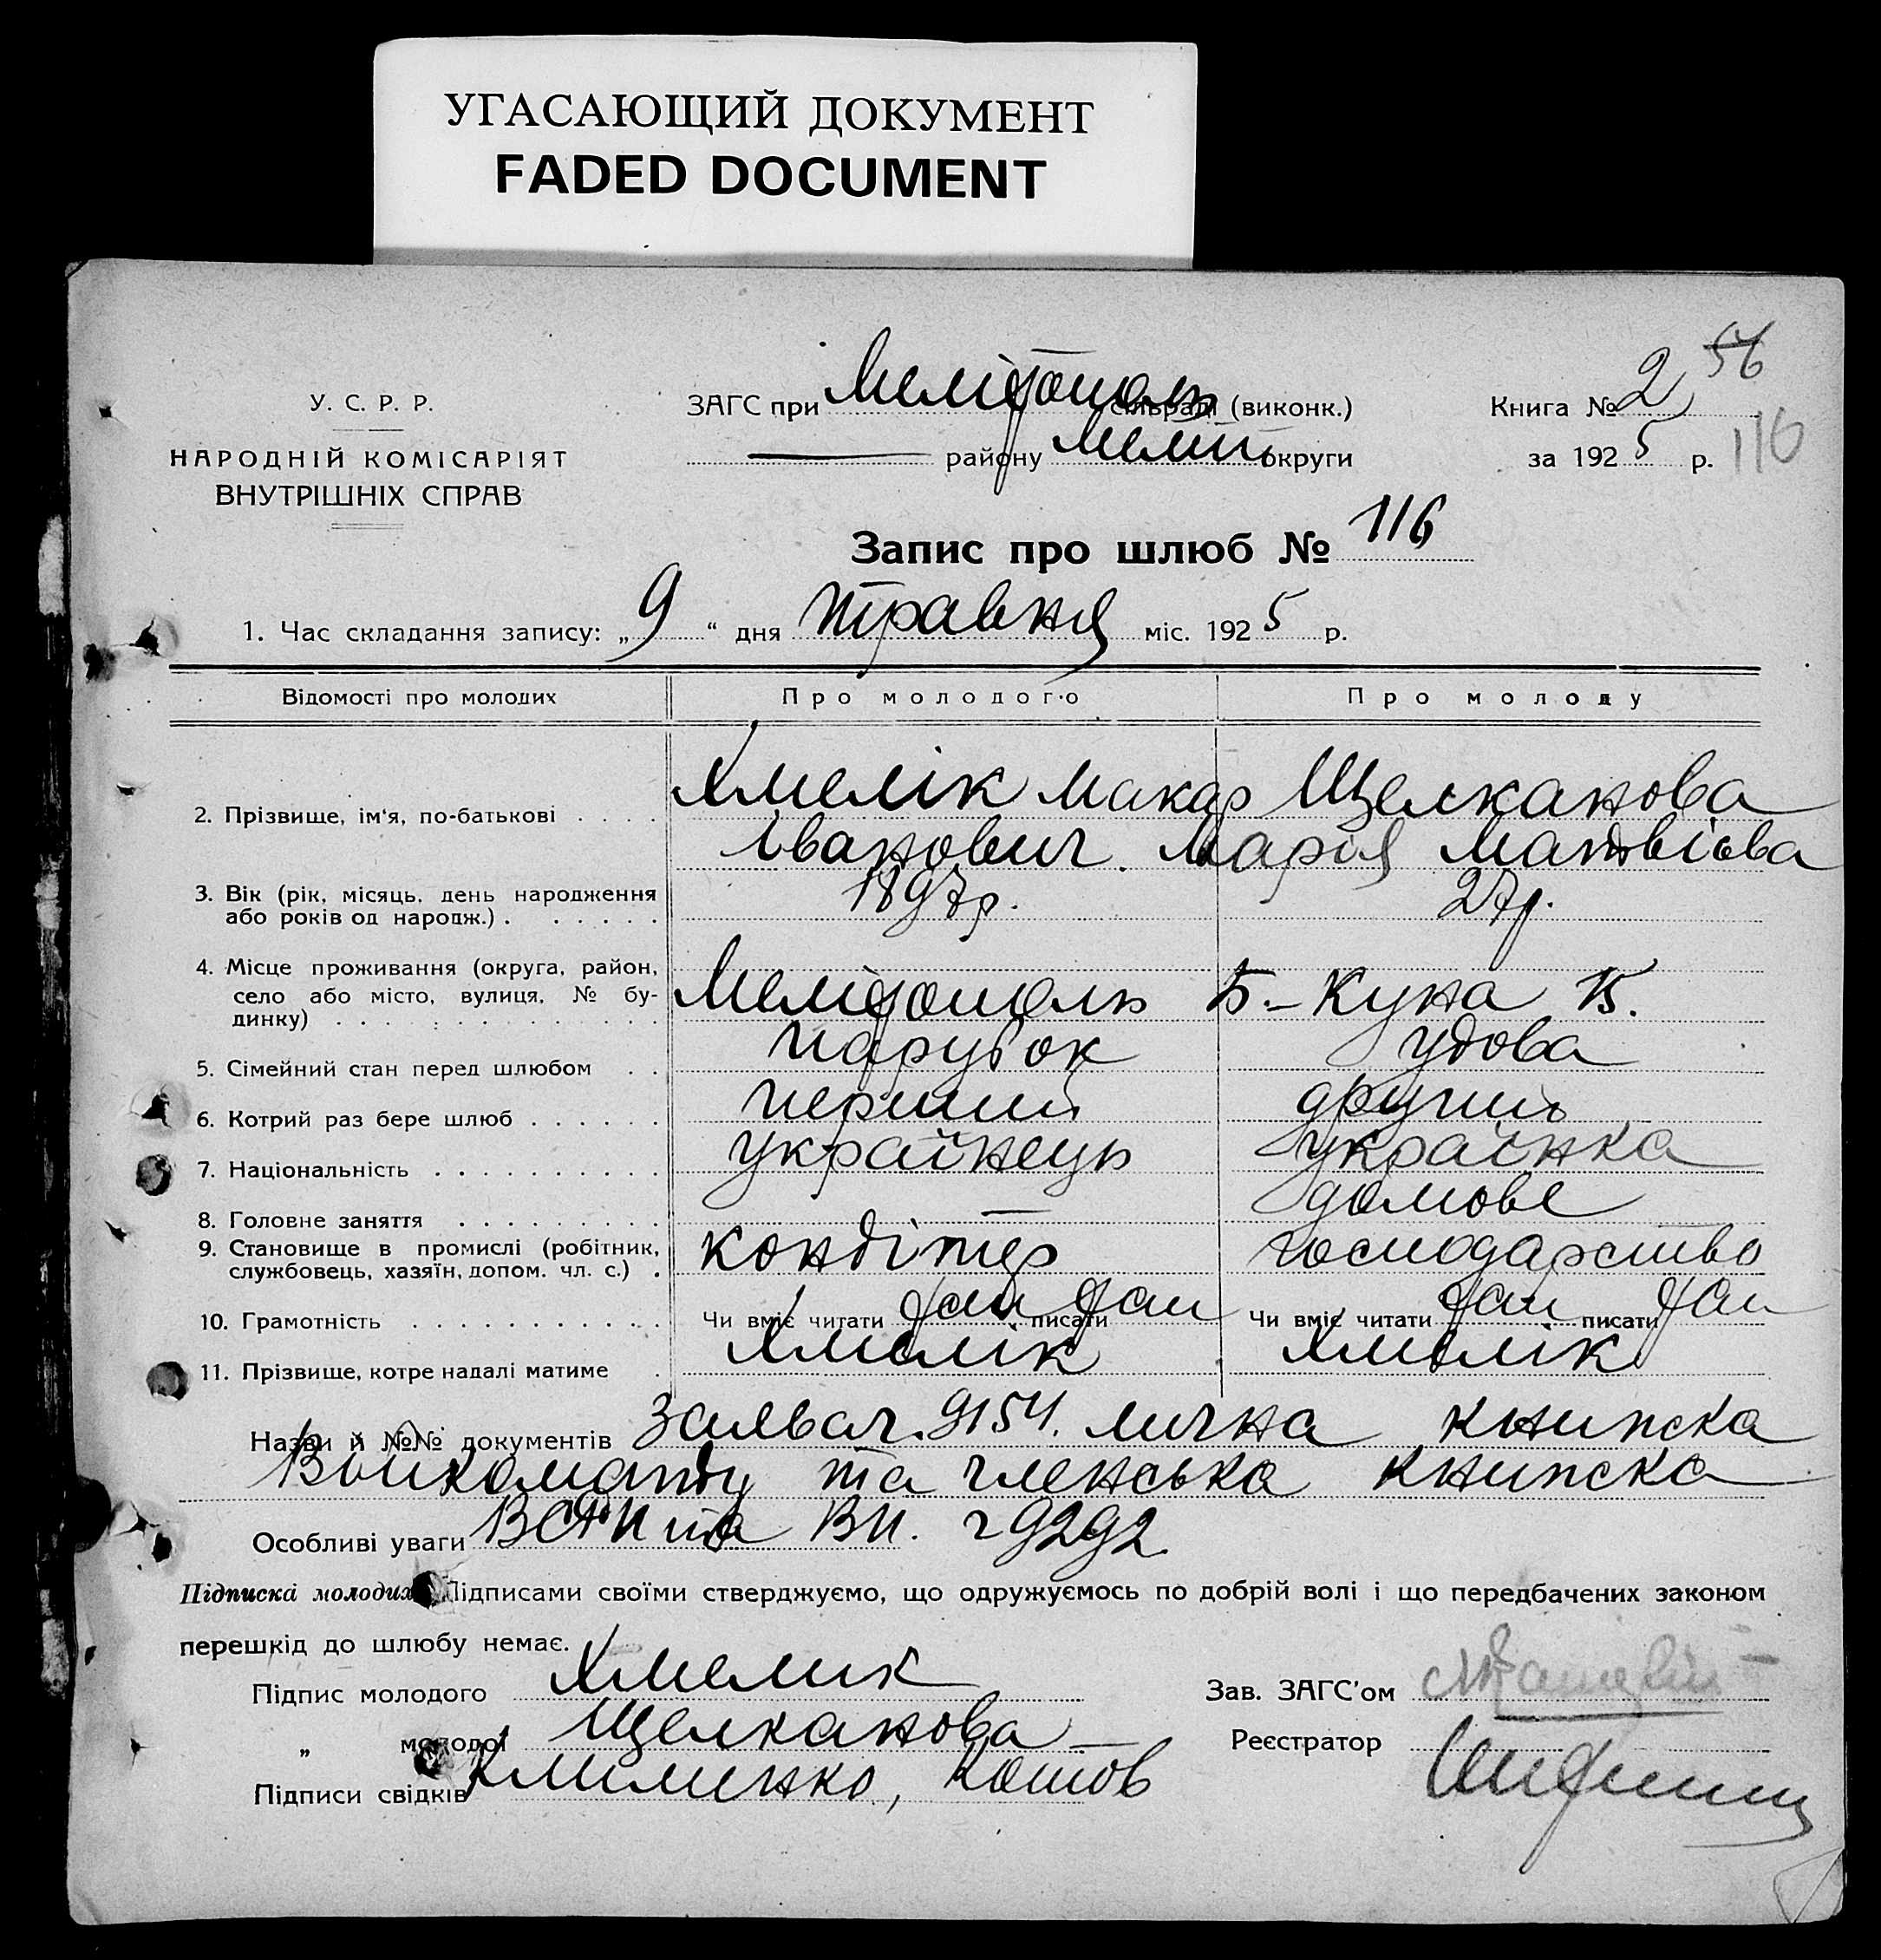 УГАСАЮЩИЙ ДОКУМЕНТ
FADED DOCUMENT
У. С. Р. Р.
НАРОДНІЙ КОМІСАРІЯТ
ВНУТРІШНІХ СПРАВ
ЗАГС при Мелітополь сільраді (виконк.)
району Меліт округи
Книга № 2 56
за 1925 р. 116
Запис про шлюб № 116
1. Час складання запису: „9“ дня травня міс. 1925 р.
Відомості про молодих Про молодого Про молоду
2. Прізвище, ім'я, по-батькові . . . . Хмелік Макар Щелканова
Іванович Марія Матвієва
3. Вік (рік, місяць, день народження 1897р. 27р.
або років од нарюдж.) . . . . . .
4. Місце проживання (округа, район,
село або місто, вулиця, № бу- Мелітополь Б.-Куна 15.
динку) . . . . . . . . . . . . .
5. Сімейний стан перед шлюбом . . парубок удова
6. Котрий раз бере шлюб . . . . . . перший другий
7. Національність . . . . . . . . . . українець українка
8. Головне заняття . . . . . . . . . домове
9. Становище в промислі (робітник, кондітер господарство
службовець, хазяїн, допом. чл. с.) .
10. Грамотність . . . . . . . . . . . Чи вміє читати так писати так Чи вміє читати так писати так
11. Прізвище, котре надалі матиме . Хмелік Хмелік
Назви й №№ документів Заява ч. 9154. лична книжка
Воикоманду та членська книжка
Особливі уваги ВСРП та ВП. ч 9292
Підписка молодих Підписами своїми стверджуємо, що одружуємось по добрій волі і що передбачених законом
перешкід до шлюбу немає.
Підпис молодого Хмелик
Зав. ЗАГС'ом
„ молодої Щелканова
Реєстратор
Підписи свідків Клименко, Котов